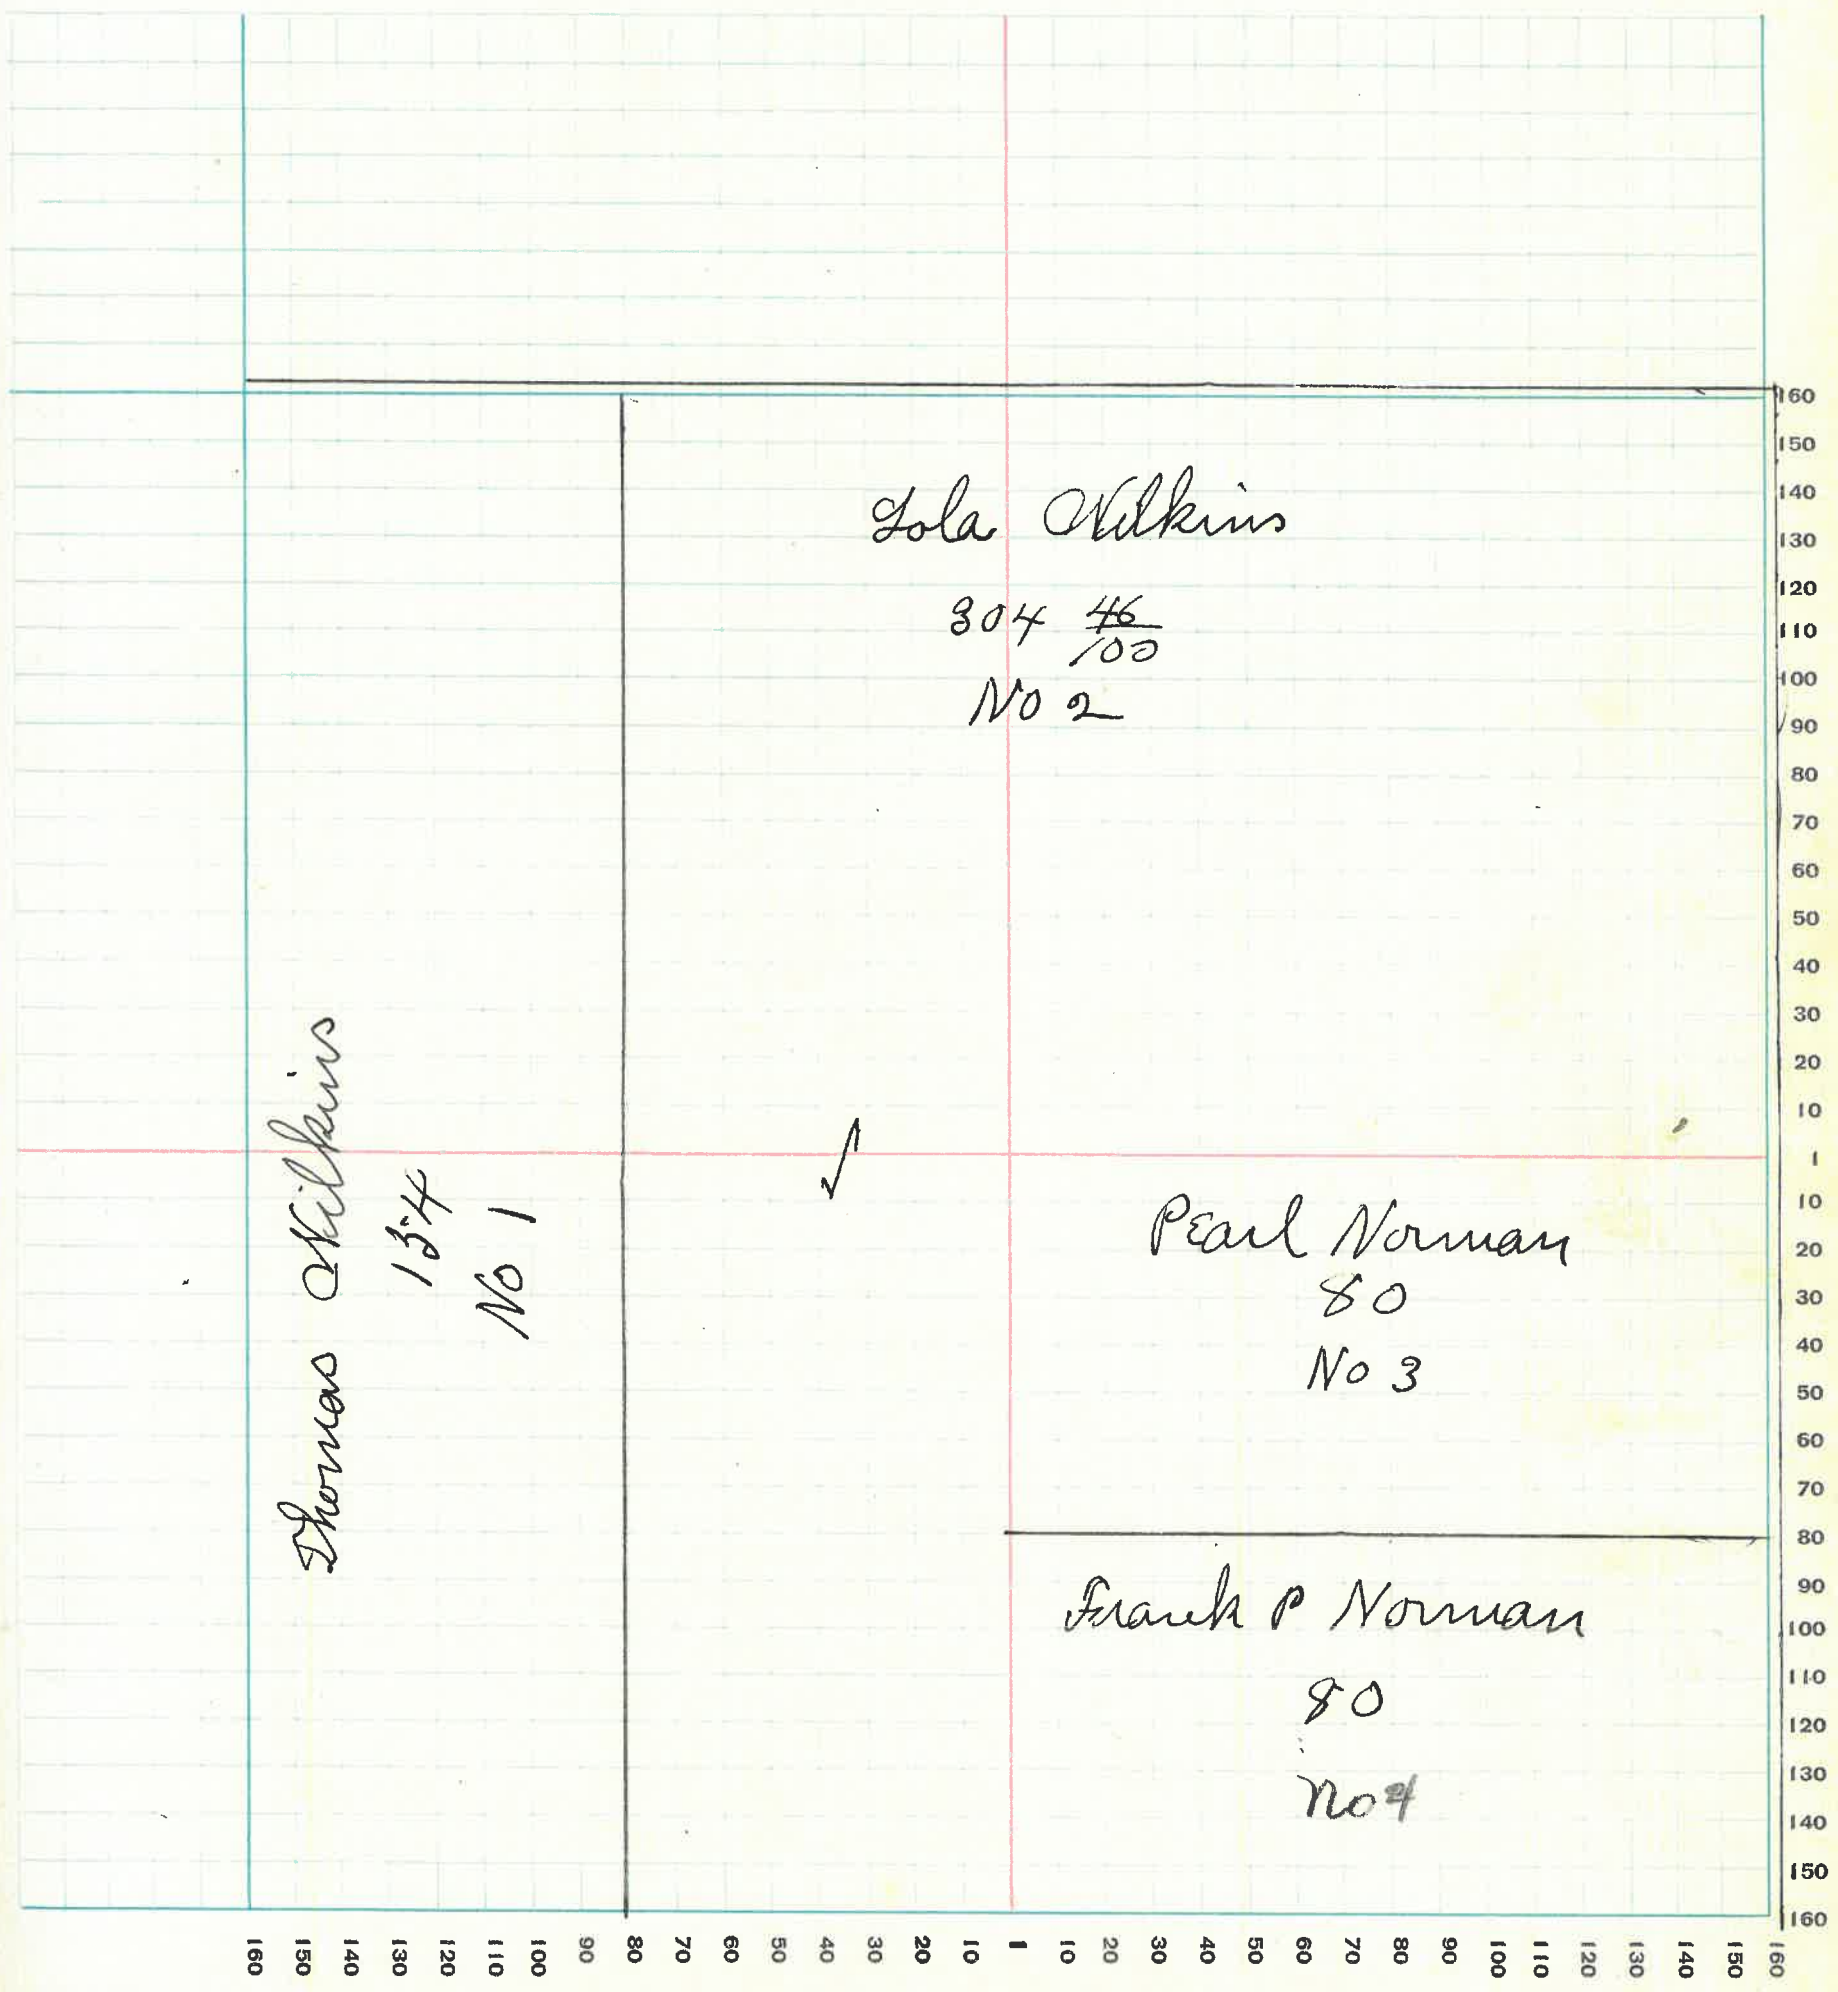 Lola Wilkins
304 46/100
No 2
Thomas Wilkins
154
No 1
Pearl Norman
80
No 3
Frank P Norman
80
No 4
160
150
140
130
120
110
100
90
80
70
60
50
40
30
20
10
1
10
20
30
40
50
60
70
80
90
100
110
120
130
140
150
160
160 150 140 130 120 110 100 90 80 70 60 50 40 30 20 10 1 10 20 30 40 50 60 70 80 90 100 110 120 130 140 150 160